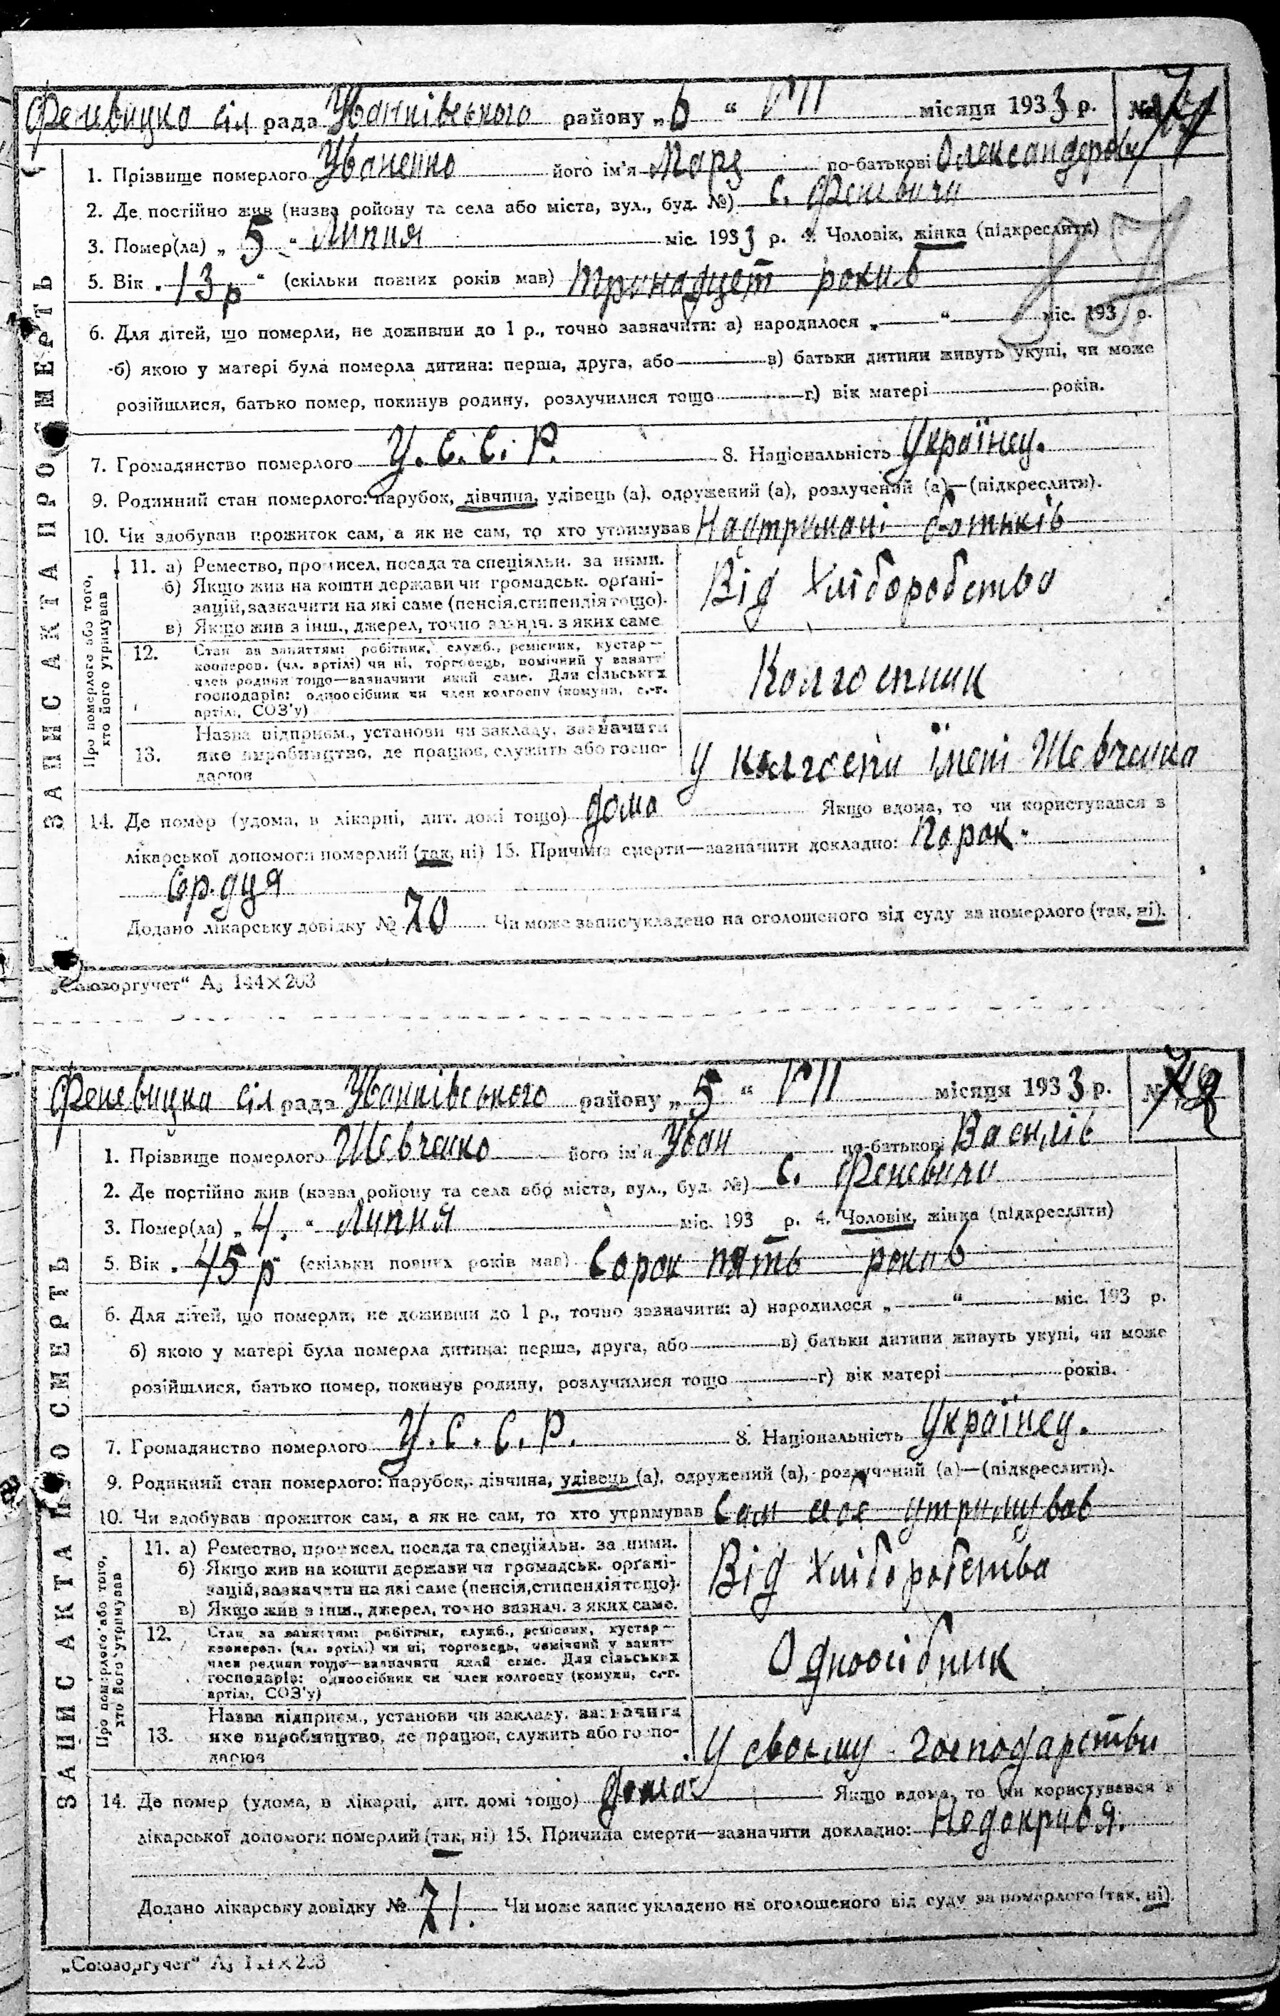 Феневицка сіл рада Іванківського району „6 “ VII місяця 1933 р. № 71
1. Прізвище померлого Іваненко його ім'я Марія по-батькові Олександрова
2. Де постійно жив (назва ройону та села або міста, вул., буд. №) с. Феневичи
3. Помер(ла) „ 5 “ Липня міс. 1933 р. 4. Чоловік, жінка (підкреслити)
5. Вік „ 13 р “ (скільки повних років мав) тринадцет роки в
6. Для дітей, що померли, не доживши до 1 р., точно зазначити: а) народилося „ “ міс. 193 р.
б) якою у матері була померла дитина: перша, друга, або в) батьки дитини живуть укупі, чи може
розійшлися, батько помер, покинув родину, розлучилися тощо г) вік матері років.
7. Громадянство померлого У. С. С. Р. 8. Національність Українец.
9. Родинний стан померлого: парубок, дівчина, удівець (а), одружений (а), розлучений (а)—(підкреслити).
10. Чи здобував прожиток сам, а як не сам, то хто утримував На утримані батьків
ЗАПИС АКТА ПРО СМЕРТЬ
Про померлого або того, хто його утримував
11. а) Ремество, промисел, посада та спеціяльн. за ними.
б) Якщо жив на кошти держави чи громадськ. орґані-
зацій, зазначити на які саме (пенсія, стипендія тощо).
в) Якщо жив з інш., джерел, точно зазнач. з яких саме
Від Хліборобства
12. Стан за заняттям: робітник, служб., ремісник, кустар—
кооперов. (чл. артілі) чи ні, торговець, помічний у занятт
член родини тощо—зазначити який саме. Для сільських
господарів: одноосібник чи член колгоспу (комуни, с.-г.
артілі, СОЗ'у)
Колгоспник
13. Назва підприєм., установи чи закладу, зазначити
яке виробництво, де працює, служить або госпо-
дарює
У колгоспи імені Шевченка
14. Де помер (удома, в лікарні, дит. домі тощо) дома Якщо вдома, то чи користувався з
лікарської допомоги померлий (так, ні) 15. Причина смерти—зазначити докладно: Порок
сердця
Додано лікарську довідку № 70 Чи може запис укладено на оголошеного від суду за померлого (так, ні).
„Союзоргучет“ А₅ 144×203
Феневицка сіл рада Іванківського району „ 5 “ VII місяця 1933 р. № 72
1. Прізвище померлого Шевченко його ім'я Іван по-батькові Василів
2. Де постійно жив (назва ройону та села або міста, вул., буд. №) с. Феневичи
3. Помер(ла) „ 4. “ Липня міс. 193 р. 4. Чоловік, жінка (підкреслити)
5. Вік „ 45 р “ (скільки повних років мав) Сорок пять роки в
6. Для дітей, що померли, не доживши до 1 р., точно зазначити: а) народилося „ “ міс. 193 р.
б) якою у матері була померла дитина: перша, друга, або в) батьки дитини живуть укупі, чи може
розійшлися, батько помер, покинув родину, розлучилися тощо г) вік матері років.
7. Громадянство померлого У. С. С. Р. 8. Національність Українец.
9. Родинний стан померлого: парубок, дівчина, удівець (а), одружений (а), розлучений (а)—(підкреслити).
10. Чи здобував прожиток сам, а як не сам, то хто утримував Сам себе утримував
ЗАПИС АКТА ПРО СМЕРТЬ
Про померлого або того, хто його утримував
11. а) Ремество, промисел, посада та спеціяльн. за ними.
б) Якщо жив на кошти держави чи громадськ. орґані-
зацій, зазначити на які саме (пенсія, стипендія тощо).
в) Якщо жив з інш., джерел, точно зазнач. з яких саме.
Від Хліборобства
12. Стан за заняттям: робітник, служб., ремісник, кустар—
кооперов. (чл. артілі) чи ні, торговець, помічний у занятт
член родини тощо—зазначити який саме. Для сільських
господарів: одноосібник чи член колгоспу (комуни, с.-г.
артілі, СОЗ'у)
Одноосібник
13. Назва підприєм., установи чи закладу, зазначити
яке виробництво, де працює, служить або госпо-
дарює
У своєму господарстви
14. Де помер (удома, в лікарні, дит. домі тощо) дома Якщо вдома, то чи користувався з
лікарської допомоги померлий (так, ні) 15. Причина смерти—зазначити докладно: Недокрівя.
Додано лікарську довідку № 71. Чи може запис укладено на оголошеного від суду за померлого (так, ні).
„Союзоргучет“ А₅ 144×203